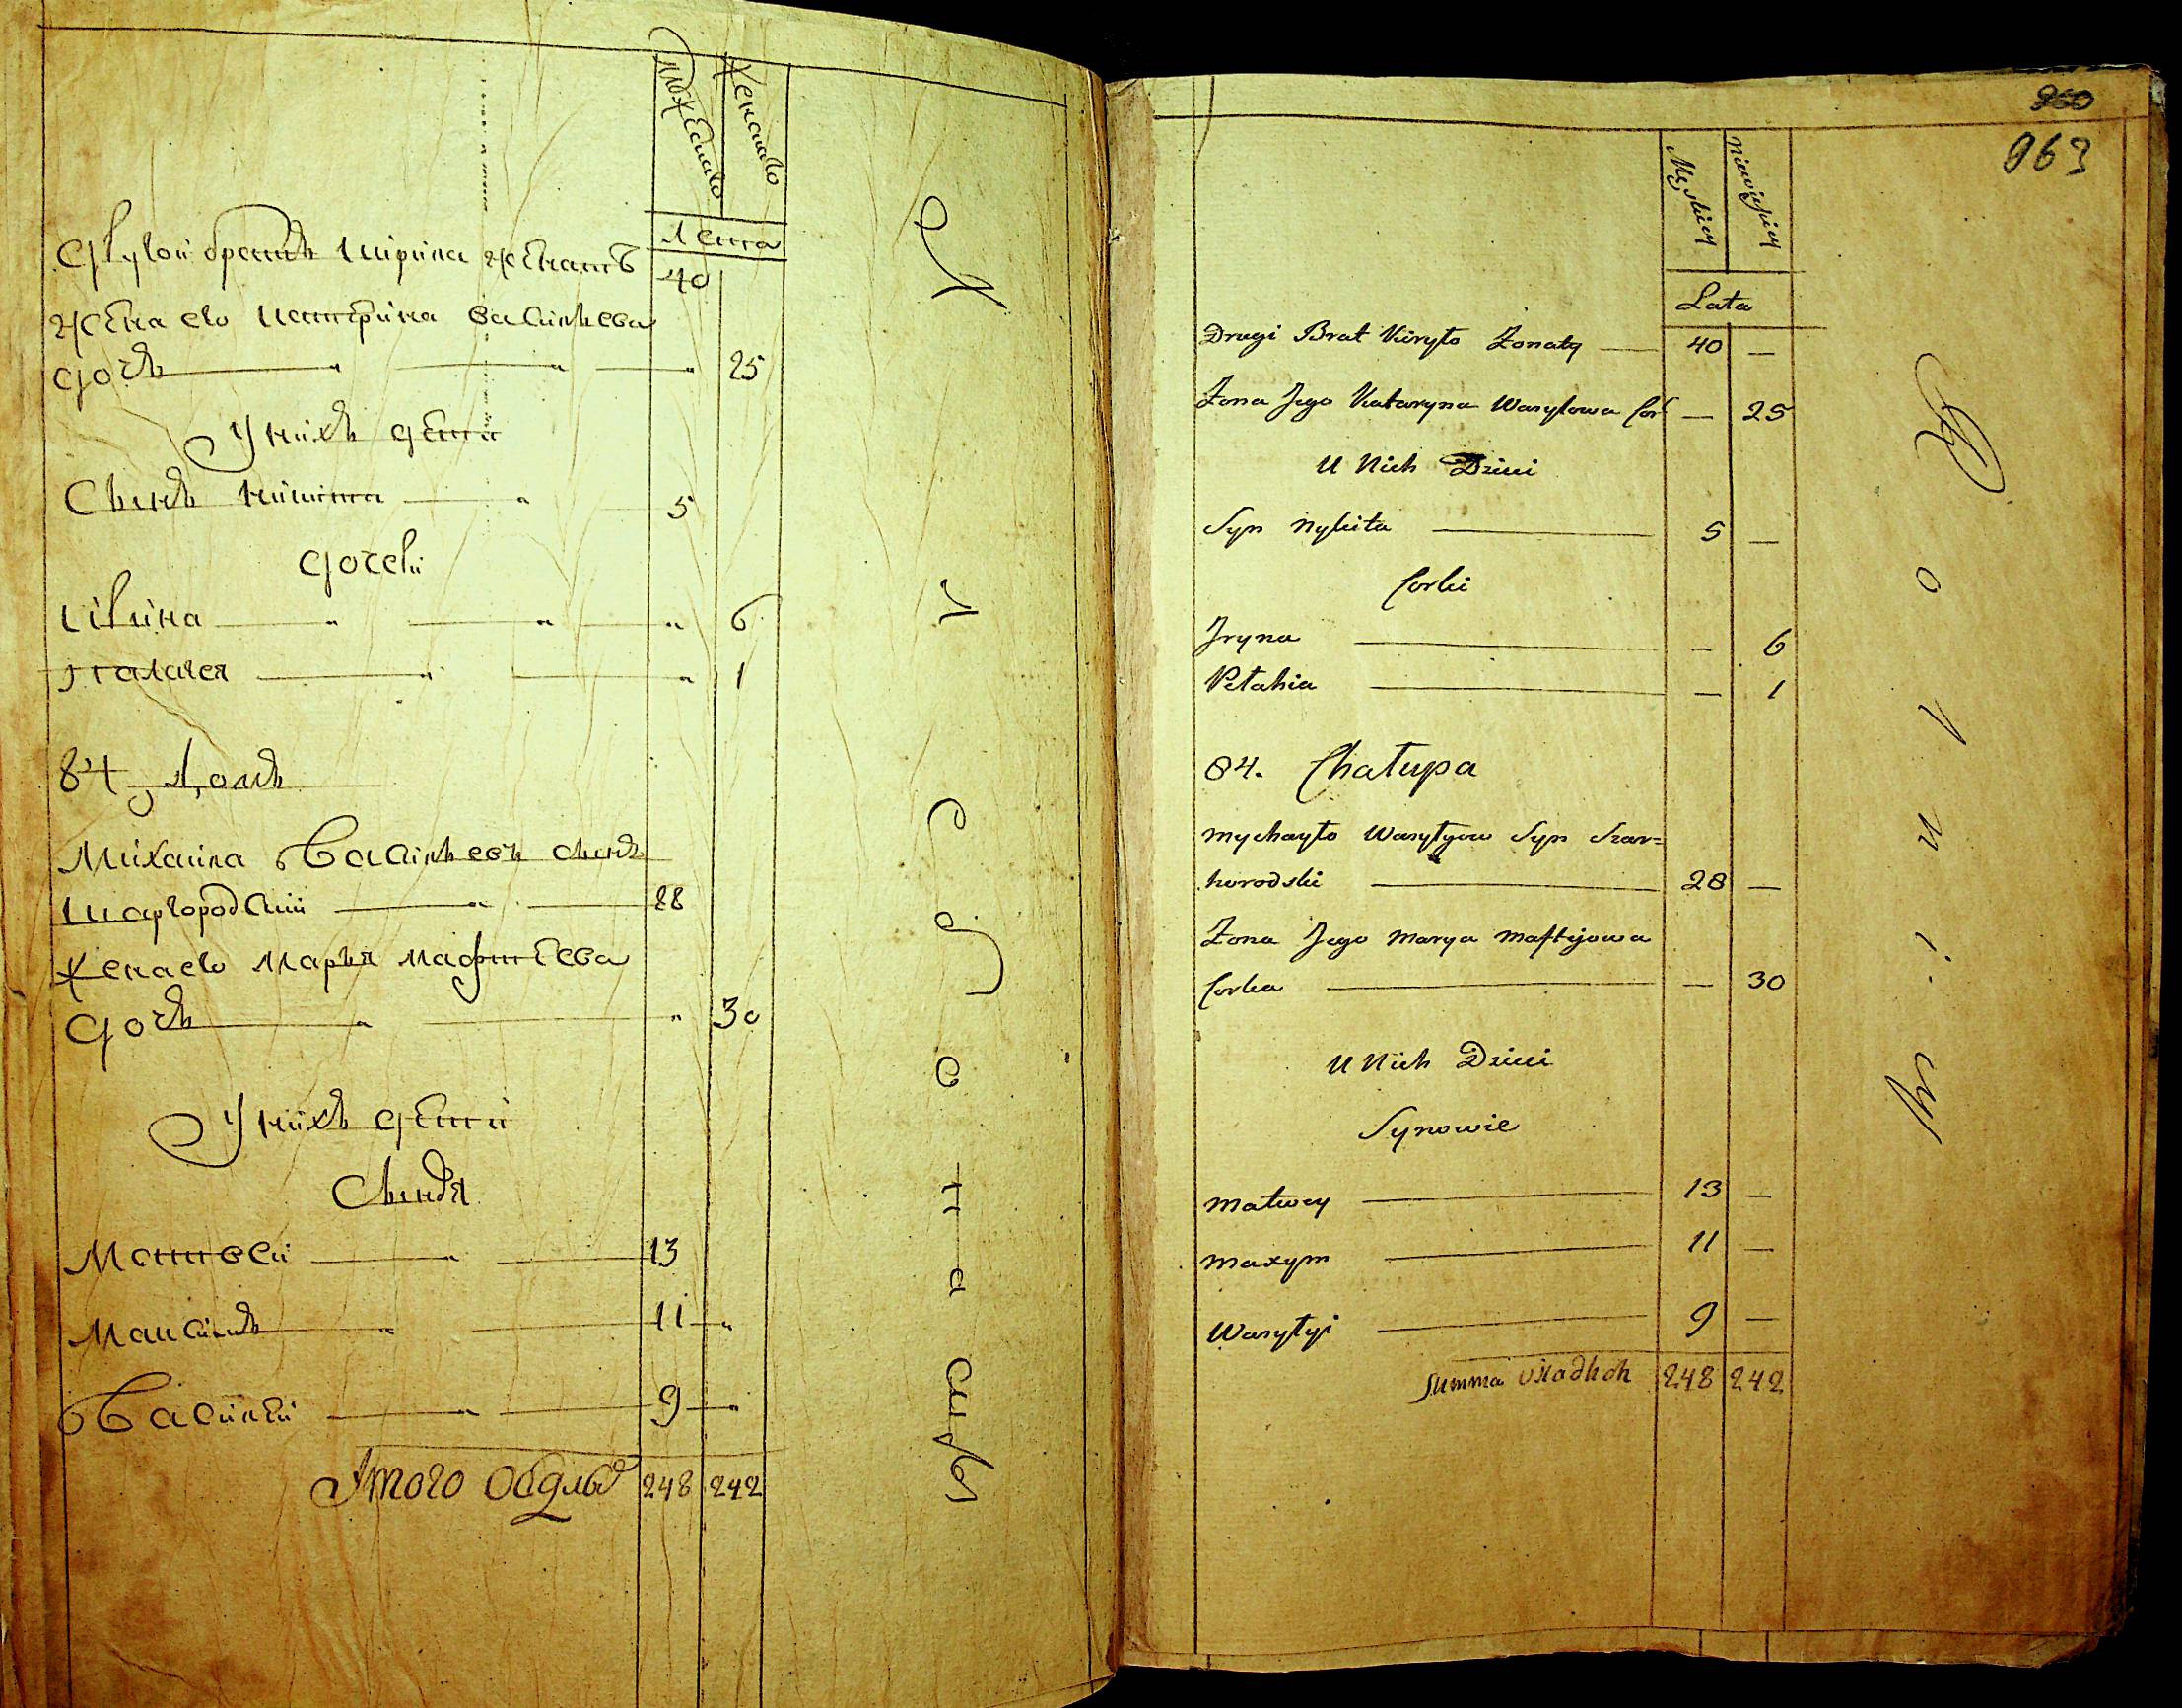 Мужеска
Женска
Лета
Другой братъ Кирила женатъ 40
жена его Катерина Васильева
дочь 25
У нихъ дети
Сынъ Никита 5
дочери
Ирина 6
Палагея 1
84 Домъ
Михаила Васильевъ сынъ
Шаргородский 28
Жена его Марья Мафтеева
дочь 30
У нихъ дети
Сыновя
Матвей 13
Максимъ 11
Василей 9
Итого 248 242
960
963
Męskiey
Niewieściey
Lata
Drugi Brat Kiryło Żonaty — 40 —
Żona Jego Kataryna Wasylowa Cor — 25
U Nich Dzieci
Syn Nykita — 5 —
Corki
Jryna — — 6
Pelahia — — 1
84. Chałupa
Mychayło Wasylyow Syn Szar=
horodski — 28 —
Żona Jego Marya Maftejowa
Corka — — 30
U Nich Dzieci
Synowie
Matwey — 13 —
Maxym — 11 —
Wasylyi — 9 —
Summa 248 242